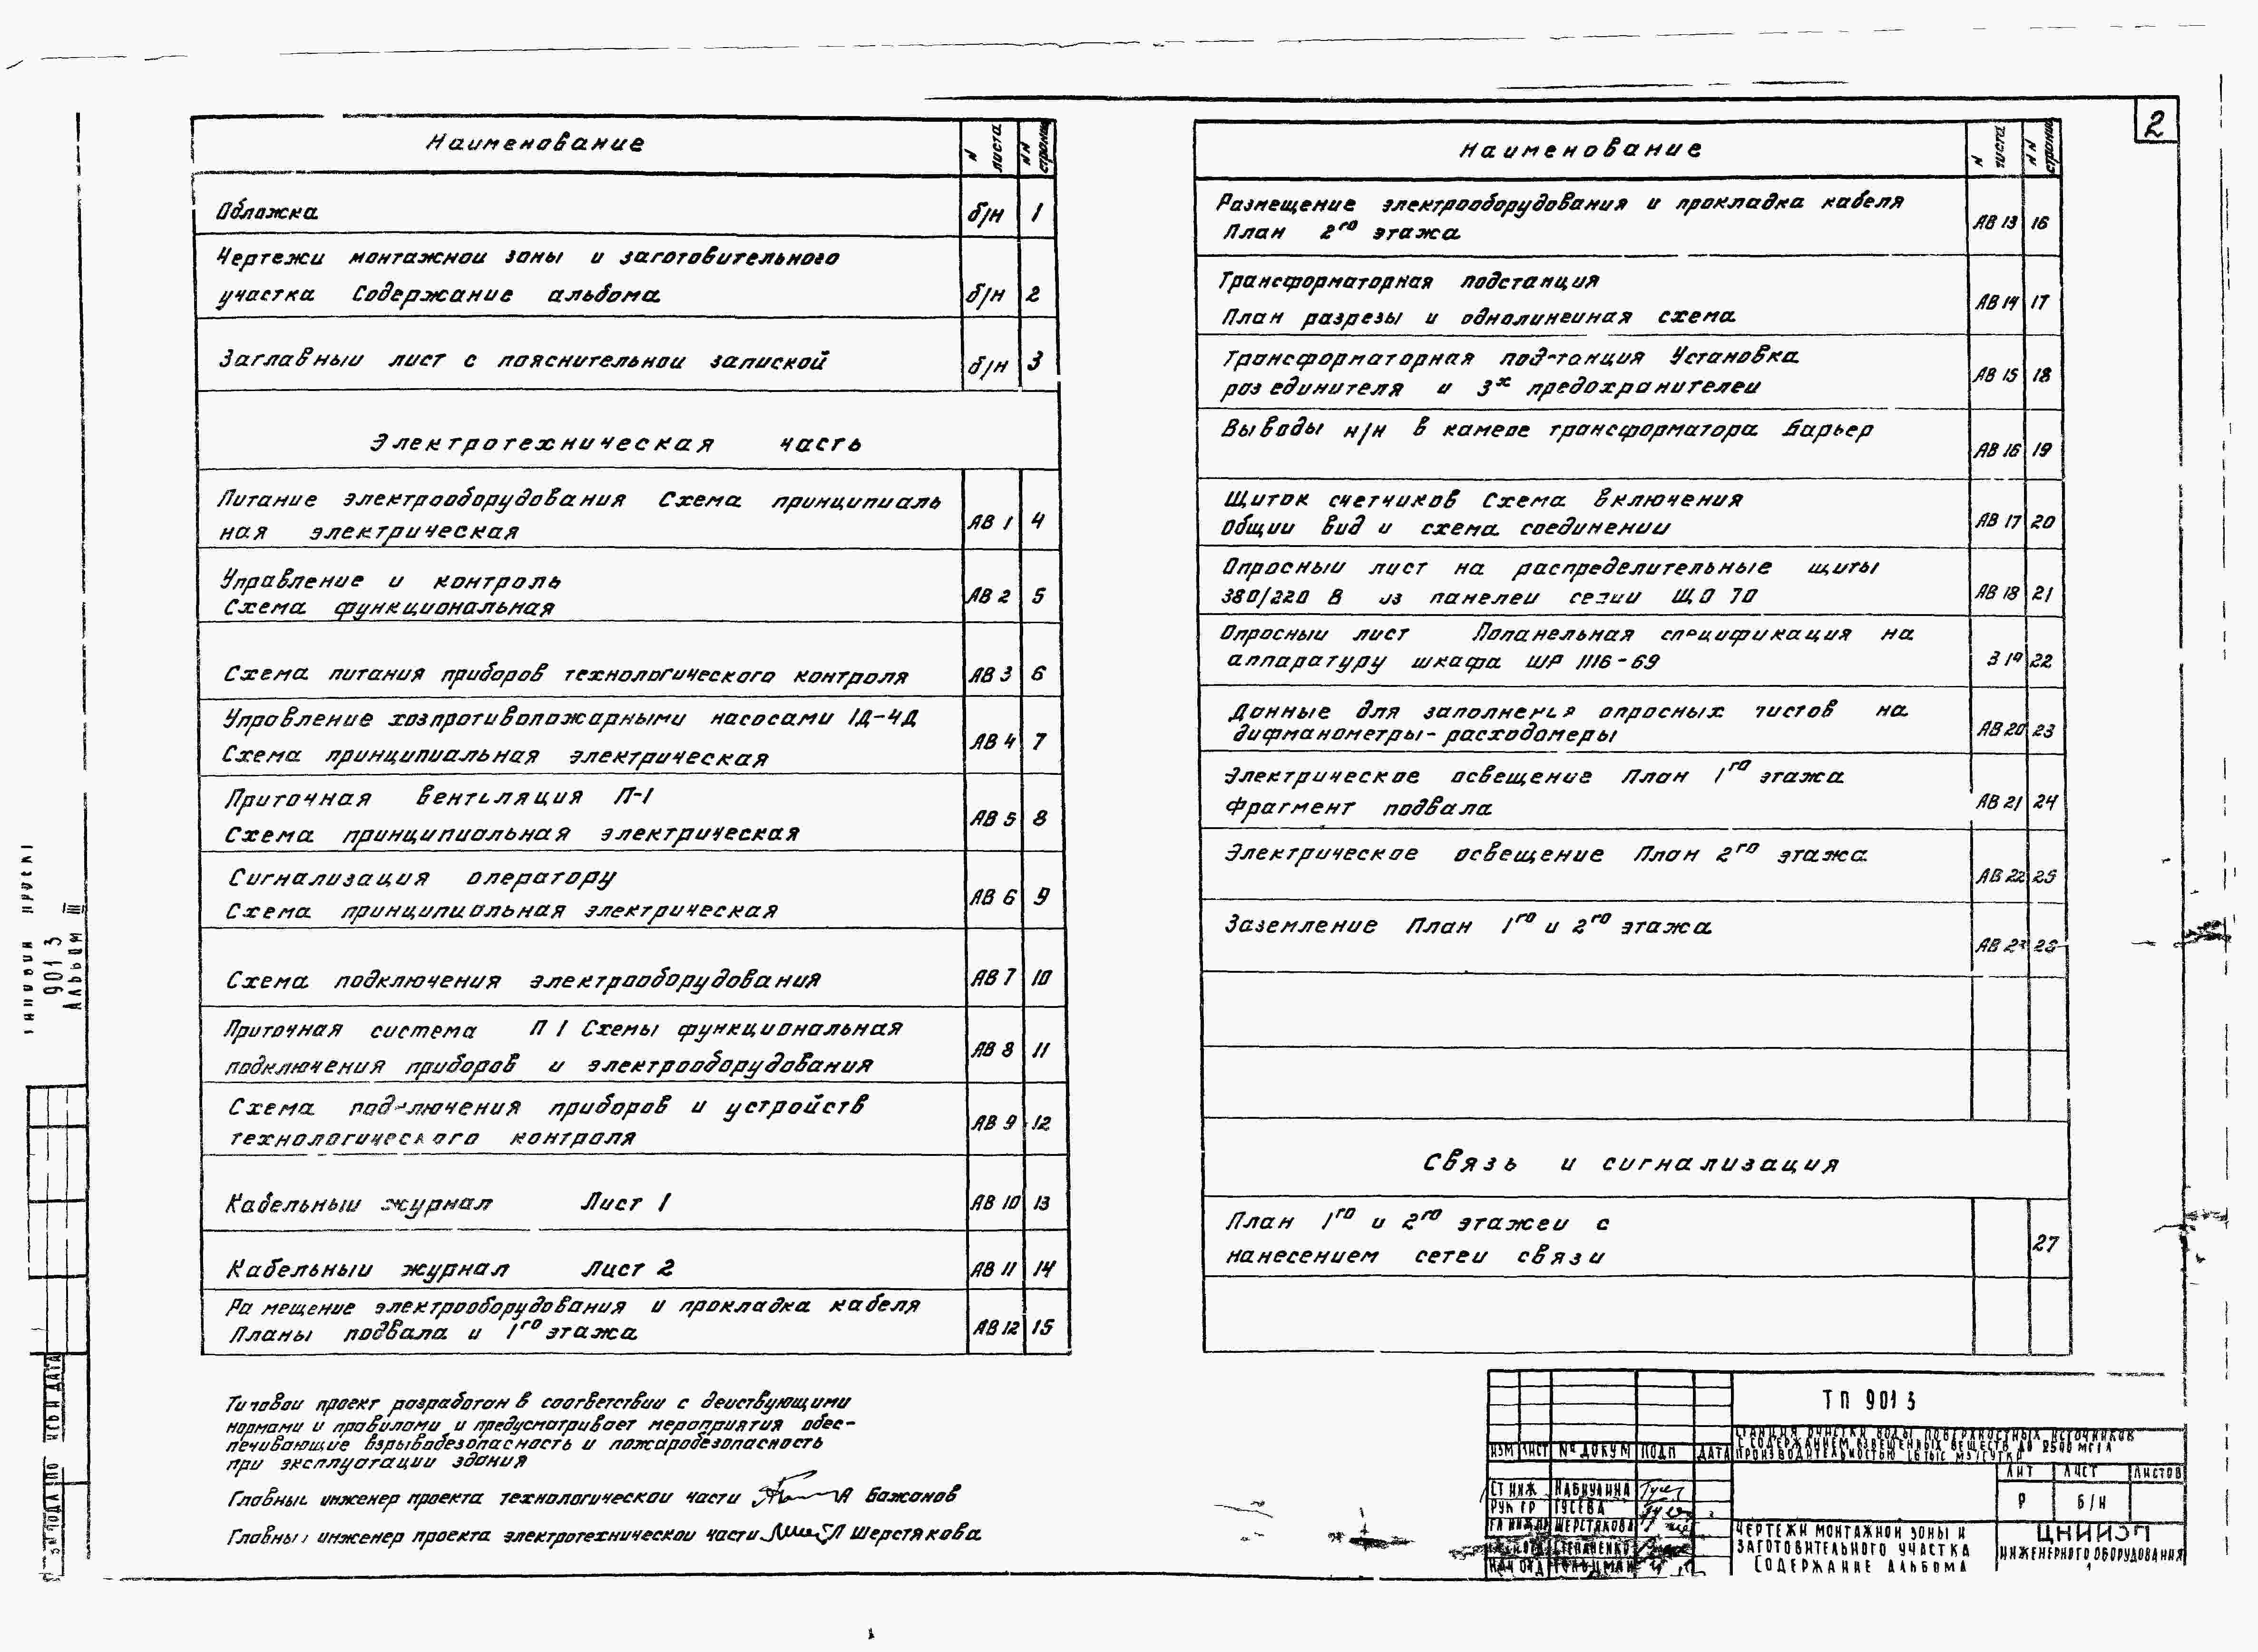 2
Наименование
N листа
NN страниц
Обложка б/н 1
Чертежи монтажной зоны и заготовительного
участка Содержание альбома б/н 2
Заглавный лист с пояснительной запиской б/н 3
Электротехническая часть
Питание электрооборудования Схема принципиаль
ная электрическая АВ 1 4
Управление и контроль
Схема функциональная АВ 2 5
Схема питания приборов технологического контроля АВ 3 6
Управление хозпротивопожарными насосами 1Д-4Д
Схема принципиальная электрическая АВ 4 7
Приточная вентиляция П-1
Схема принципиальная электрическая АВ 5 8
Сигнализация оператору
Схема принципиальная электрическая АВ 6 9
Схема подключения электрооборудования АВ 7 10
Приточная система П 1 Схемы функциональная
подключения приборов и электрооборудования АВ 8 11
Схема подключения приборов и устройств
технологического контроля АВ 9 12
Кабельный журнал Лист 1 АВ 10 13
Кабельный журнал Лист 2 АВ 11 14
Ра мещение электрооборудования и прокладка кабеля
Планы подвала и 1го этажа АВ 12 15
Типовой проект разработан в соответствии с действующими
нормами и правилами и предусматривает мероприятия обес-
печивающие взрывобезопасность и пожаробезопасность
при эксплуатации здания
Главный инженер проекта технологической части А Бажанов
Главный инженер проекта электротехнической части Л Шерстякова
Наименование
N листа
NN страниц
Размещение электрооборудования и прокладка кабеля
План 2го этажа АВ 13 16
Трансформаторная подстанция
План разрезы и однолинейная схема АВ 14 17
Трансформаторная подстанция Установка
разъединителя и 3х предохранителей АВ 15 18
Выводы н/н в камере трансформатора Барьер АВ 16 19
Щиток счетчиков Схема включения
Общий вид и схема соединений АВ 17 20
Опросный лист на распределительные щиты
380/220 В из панелей серии ЩО 70 АВ 18 21
Опросный лист Попанельная спецификация на
аппаратуру шкафа ШР 1116-69 19 22
Данные для заполнения опросных листов на
дифманометры-расходомеры АВ 20 23
Электрическое освещение План 1го этажа
Фрагмент подвала АВ 21 24
Электрическое освещение План 2го этажа АВ 22 25
Заземление План 1го и 2го этажа АВ 23 26
Связь и сигнализация
План 1го и 2го этажей с
нанесением сетей связи 27
ТП 901 3
Станция очистки воды поверхностных источников
с содержанием взвешенных веществ до 2500 мг/л
производительностью тыс м3/сутки
Изм Лист № докум Подп Дата
Лит Лист Листов
Р б/н
Ст инж Набиулина
Рук гр Гусева
Гл инж пр Шерстякова
Степаненко
Нач отд
Чертежи монтажной зоны и
заготовительного участка
Содержание альбома
ЦНИИЭП
инженерного оборудования
Типовой проект
901 3
Альбом III